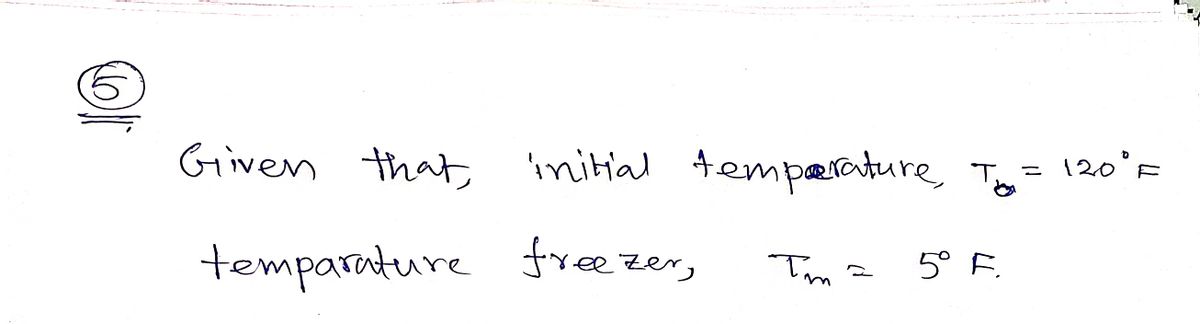 5
Given that, initial temperature, T₀ = 120°F
temparature freezer, Tm = 5° F.